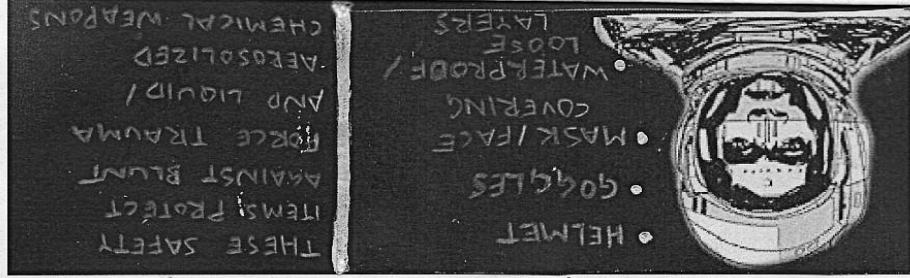 • HELMET
• GOGGLES
• MASK/FACE
COVERING
• WATERPROOF/
LOOSE
LAYERS
THESE SAFETY
ITEMS PROTECT
AGAINST BLUNT
FORCE TRAUMA
AND LIQUID/
AEROSOLIZED
CHEMICAL WEAPONS